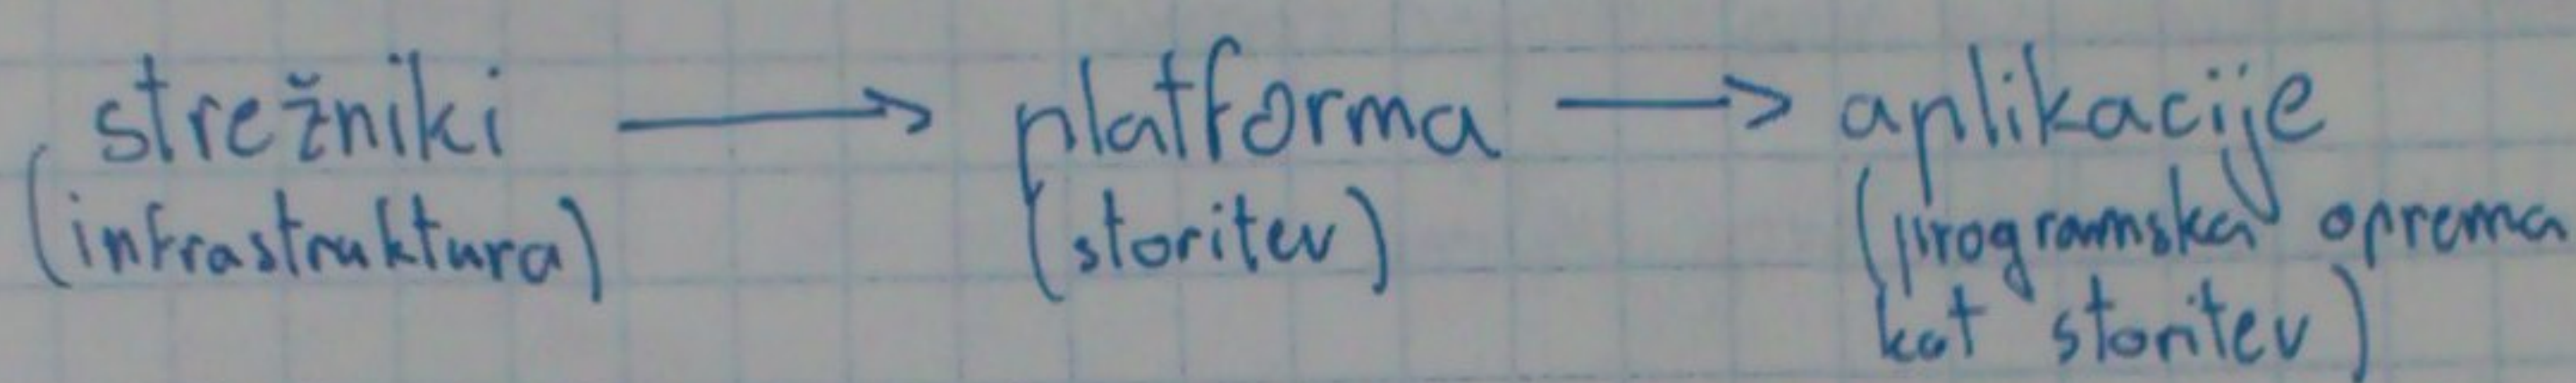 strežniki → platforma → aplikacije
(infrastruktura) (storitev) (programska oprema
kot storitev)